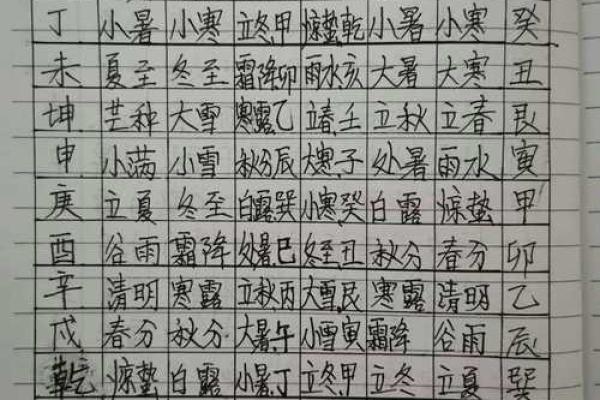 丁 小暑 小寒 立冬甲 惊蛰乾 小暑 小寒 癸
未 夏至 冬至 霜降卯 雨水亥 大暑 大寒 丑
坤 芒种 大雪 寒露乙 立春壬 立秋 立春 艮
申 小满 小雪 秋分辰 大寒子 处暑 雨水 寅
庚 立夏 冬至 白露巽 小寒癸 白露 惊蛰 甲
酉 谷雨 霜降 处暑巳 冬至丑 秋分 春分 卯
辛 清明 寒露 立秋丙 大雪艮 寒露 清明 乙
戌 春分 秋分 大暑午 小雪寅 霜降 谷雨 辰
乾 惊蛰 白露 小暑丁 立冬甲 立冬 立夏 巽